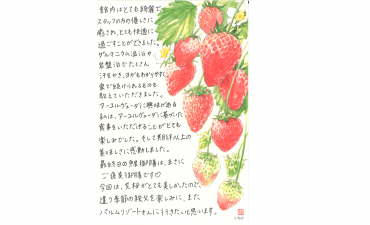 館内はとても綺麗で
スタッフの方の優しさに
癒され、とても快適に
過ごすことができました。
ゲルマニウム温浴や
岩盤浴でたくさん
汗をかき、ヨガもわかりやすく
家で続けられるものを
教えていただきました。
アーユルヴェーダに興味がある
私は、アーユルヴェーダに基づいた
食事をいただけることがとても
楽しみでした。そして期待以上の
美味しさに感動しました。
最終日の 御膳は、まさに
ご褒美御膳です♡
今回は、 桜がとても美しかったので、
違う季節の絵文を楽しみに、また
パルムリゾートさんに行きたいと思います。
いちご